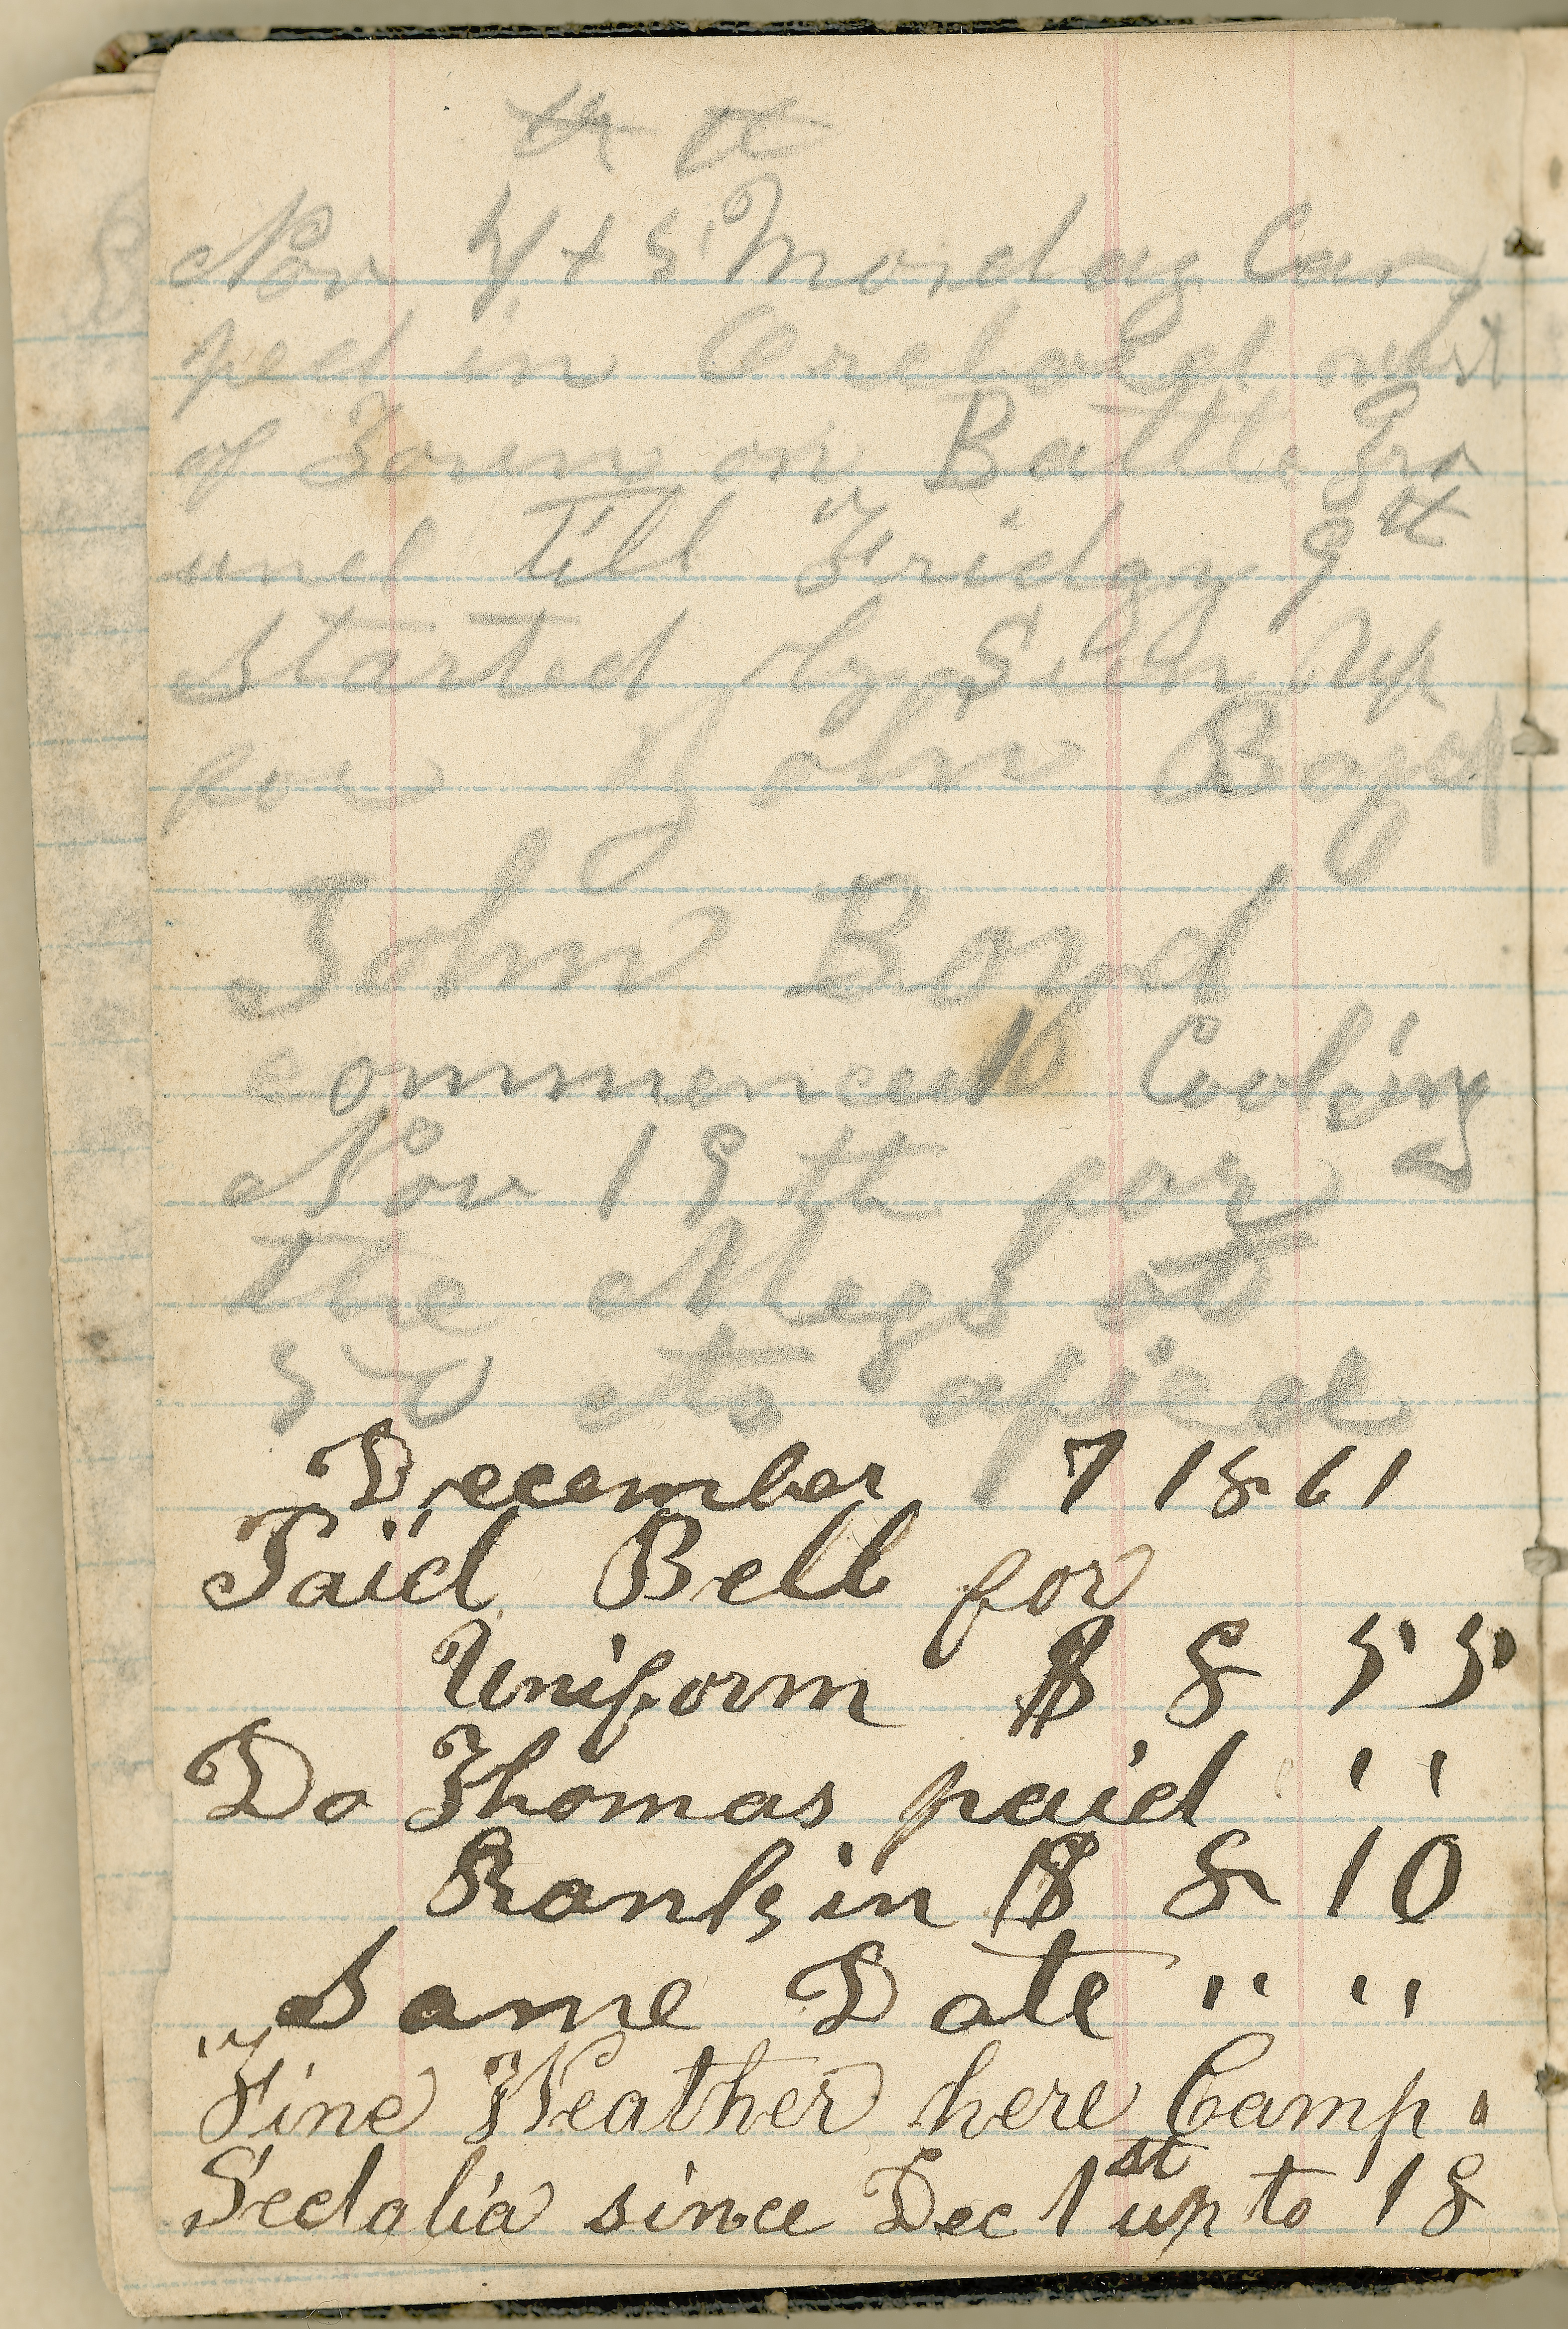 th th
Nov 4 + 5 Monday Cam
ped in Orchard west
of Town on Battle Gro
und till Friday 9th
Started by Sun Up
for John Boyd
John Boyd
commenced Cooking
Nov 19th for
the Megs at
50 cts apiece
December 7 1861
Paid Bell for
Uniform $ 8 55
Do Thomas paid " "
Rankin $ 8 10
Same Date " " " "
"Fine Weather here Camp
Sedalia since Dec 1st up to 18